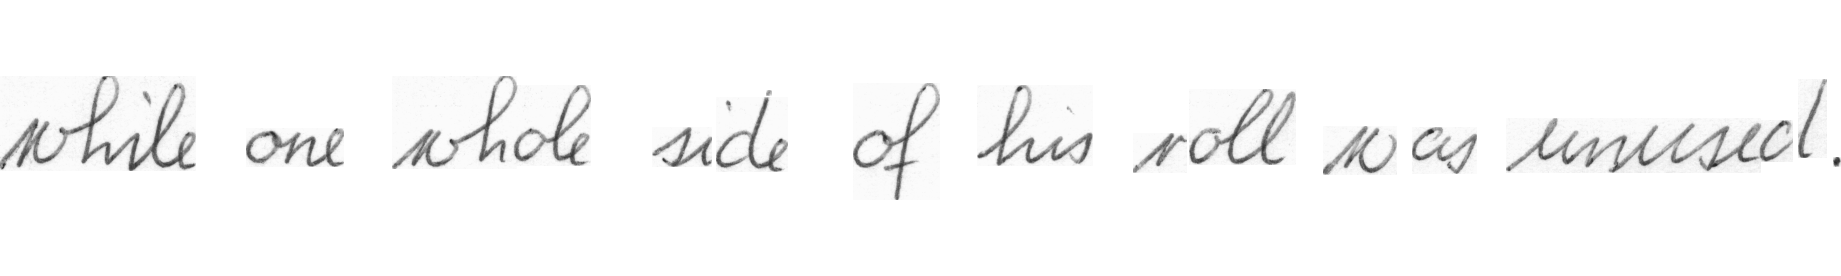 while one whole side of his roll was unused.